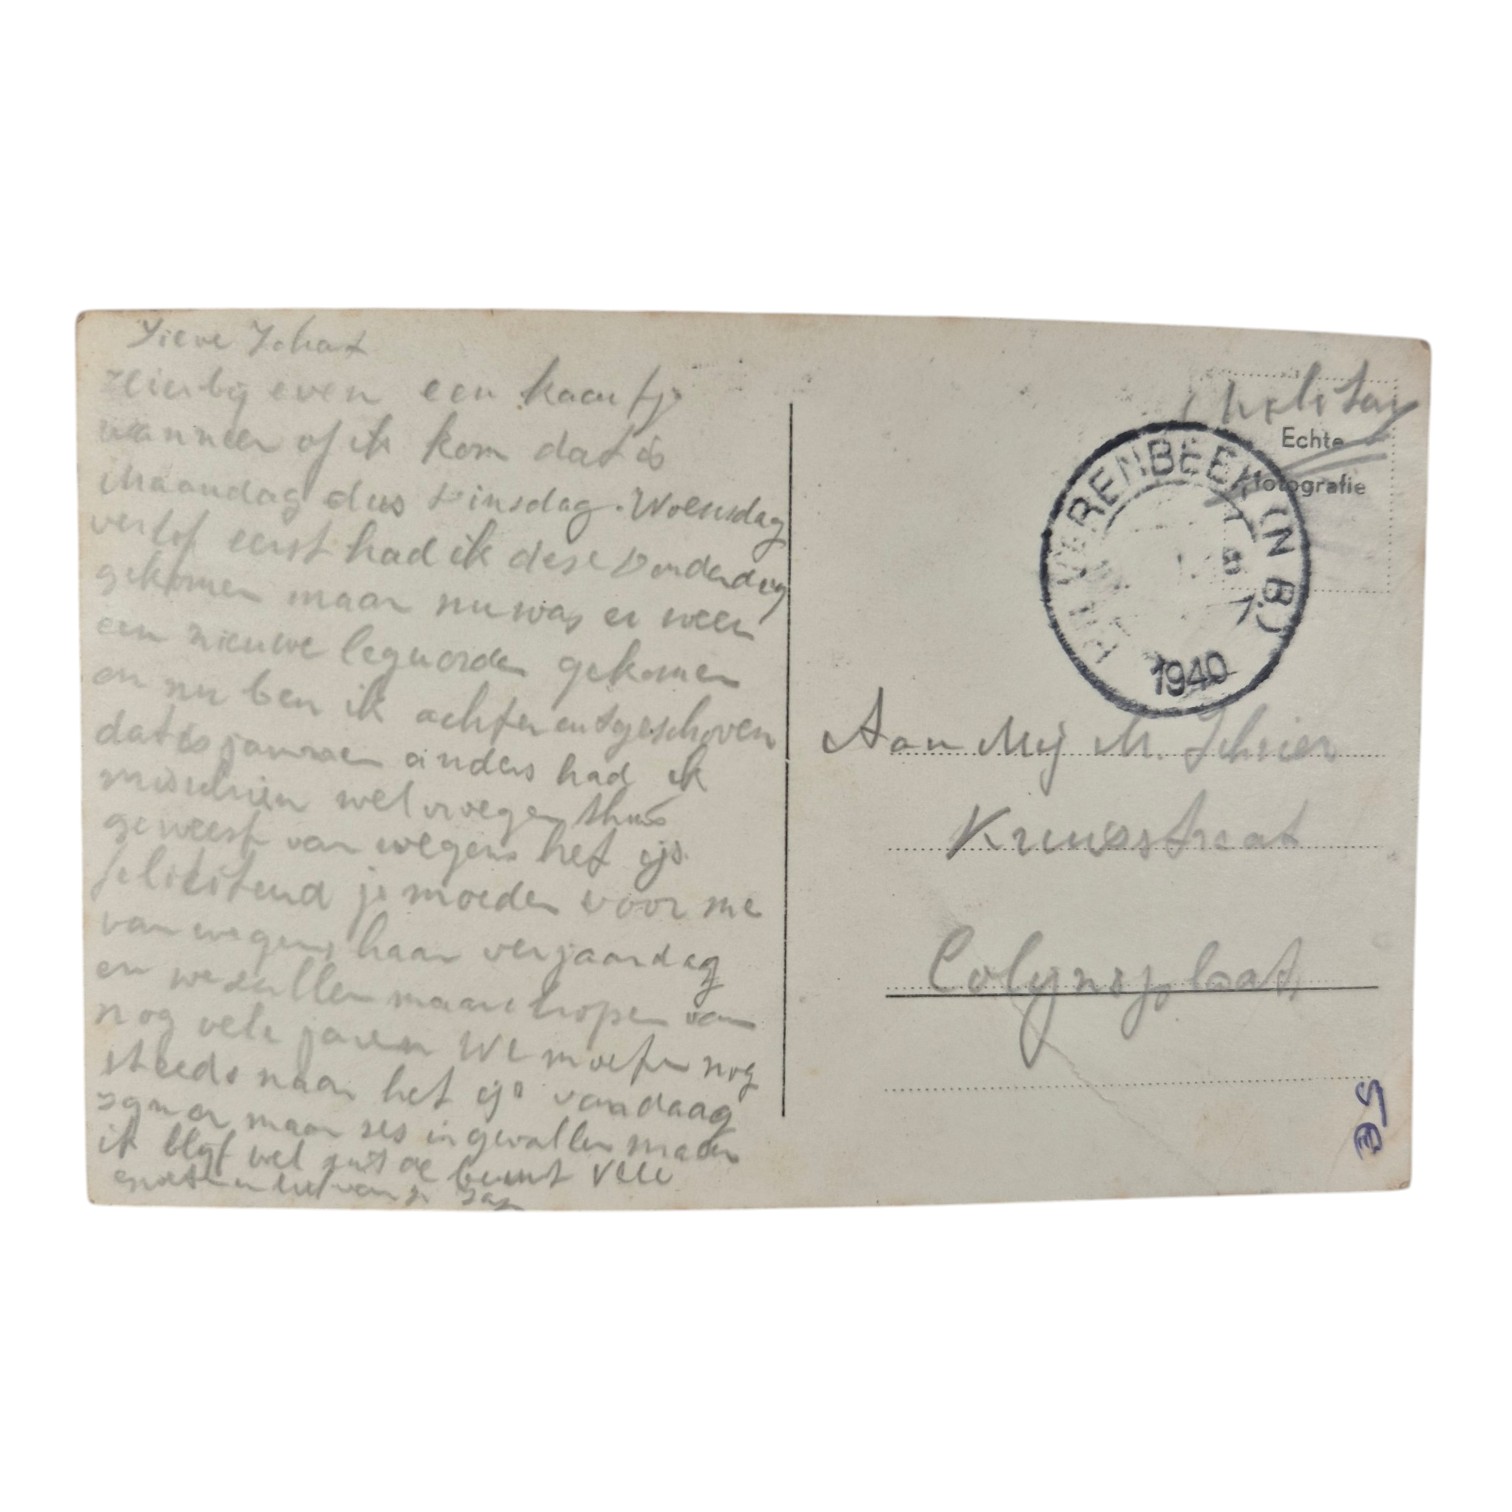 Lieve Schat
Hierbij even een kaartje
wanneer of ik kom dat is
Maandag dus Dinsdag. Woensdag
verlof eerst had ik dese Donderdag
gekomen maar nu was er weer
een nieuwe legerorder gekomen
en nu ben ik achteruitgeschoven
dat is jammer anders had ik
misschien wel vroeger thuis
geweest van wegens het ijs.
feliciteerd je moeder voor me
van wegens haar verjaardag
en we zullen maar hopen van
nog vele jaren We moeten nog
steeds naar het ijs vandaag
zijn er maar zes in gevallen maar
ik blijf wel uit de buurt Vele
groeten van je Jap
Militair
Echte
Fotografie
HILVARENBEEK (N B.)
1940
Aan Mej M. Schrier
Kruisstraat
Colijnsplaat